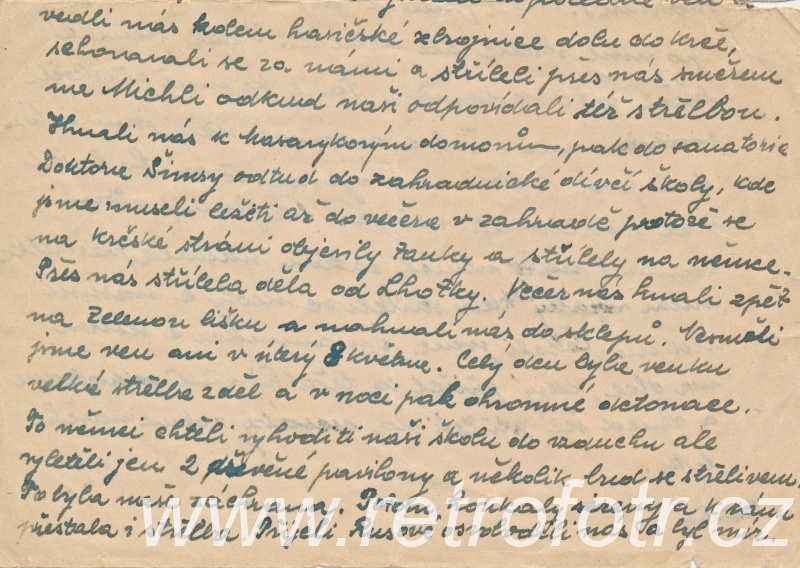 vedli nás kolem hasičské zbrojnice dolu do Krče,
schovavali se za námi a stříleli přes nás směrem
na Michli odkud naši odpovídali též strělbou.
Hnali nás k Masarykovým domovům, pak do sanatoria
Doktora Šimsy odtud do zahradnické dívčí školy, kde
jsme museli ležeti až do večera v zahradě protože se
na krčské stráni objevily tanky a střílely na němce.
Přes nás střílela děla od Lhotky. Večer nás hnali zpět
na Zelenou lišku a nahnali nás do sklepů. Nesměli
jsme ven ani v úterý 8 května. Celý den byla venku
velká strělba z děl a v noci pak ohromné detonace.
To němci chtěli vyhoditi naši školu do vzduchu ale
vyletěli jen 2 dřevěné pavilony a několik bud se strělivem.
To byla naše záchrana. Potom houkaly sireny a k ránu
přestala i strělba Přijeli Rusové osvobodili nás a byl mír.
www.retrofotr.cz